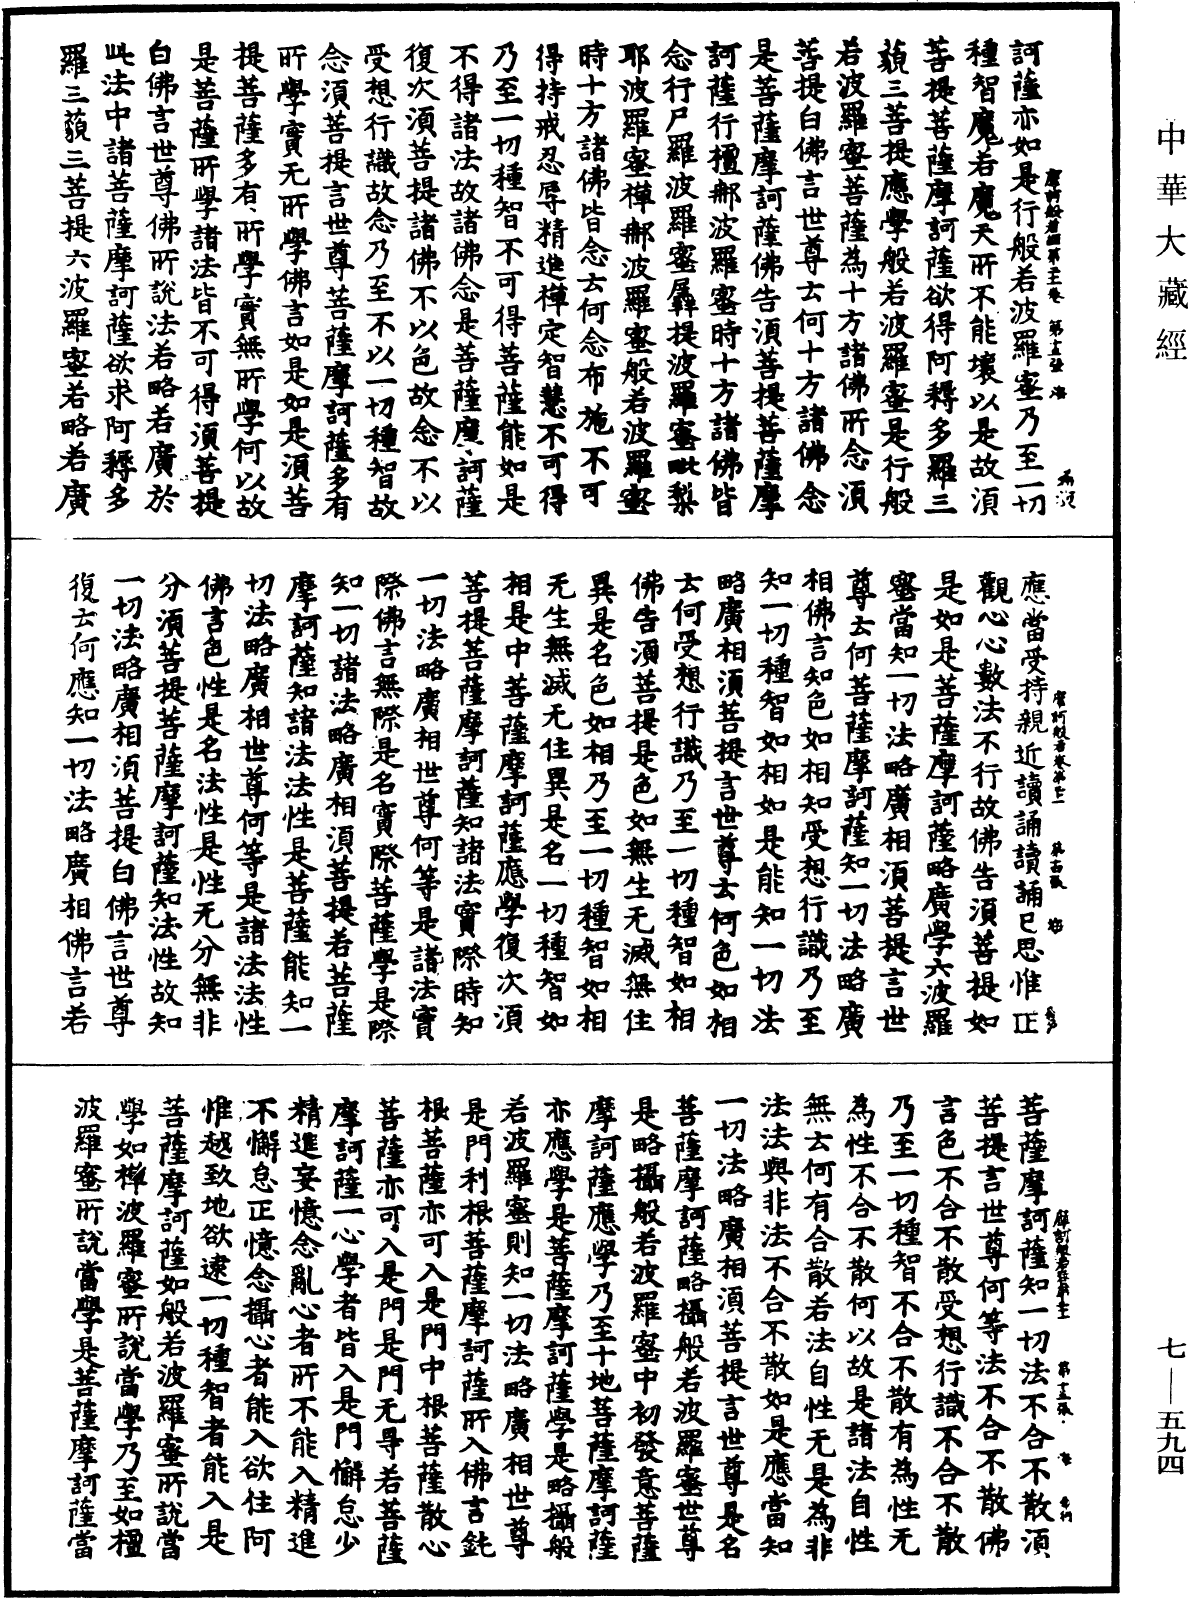 中華大藏經
訶薩亦如是行般若波羅蜜乃至一切
種智魔若魔天所不能壞以是故須
菩提菩薩摩訶薩欲得阿耨多羅三
藐三菩提應學般若波羅蜜是行般
若波羅蜜菩薩為十方諸佛所念須
菩提白佛言世尊云何十方諸佛念
是菩薩摩訶薩佛告須菩提菩薩摩
訶薩行檀那波羅蜜時十方諸佛皆
念行尸羅波羅蜜羼提波羅蜜毗梨
耶波羅蜜禪那波羅蜜般若波羅蜜
時十方諸佛皆念云何念布施不可
得持戒忍辱精進禪定智慧不可得
乃至一切種智不可得菩薩能如是
不得諸法故諸佛念是菩薩摩訶薩
復次須菩提諸佛不以色故念不以
受想行識故念乃至不以一切種智故
念須菩提言世尊菩薩摩訶薩多有
所學實无所學佛言如是如是須菩
提菩薩多有所學實無所學何以故
是菩薩所學諸法皆不可得須菩提
白佛言世尊佛所說法若略若廣於
此法中諸菩薩摩訶薩欲求阿耨多
羅三藐三菩提六波羅蜜若略若廣
應當受持親近讀誦讀誦已思惟正
觀心心數法不行故佛告須菩提如
是如是菩薩摩訶薩略廣學六波羅
蜜當知一切法略廣相須菩提言世
尊云何菩薩摩訶薩知一切法略廣
相佛言知色如相知受想行識乃至
知一切種智如相如是能知一切法
略廣相須菩提言世尊云何色如相
云何受想行識乃至一切種智如相
佛告須菩提是色如無生无滅無住
異是名色如相乃至一切種智如相
无生無滅无住異是名一切種智如
相是中菩薩摩訶薩應學復次須
菩提菩薩摩訶薩知諸法實際時知
一切法略廣相世尊何等是諸法實
際佛言無際是名實際菩薩學是際
知一切諸法略廣相須菩提若菩薩
摩訶薩知諸法法性是菩薩能知一
切法略廣相世尊何等是諸法法性
佛言色性是名法性是性无分無非
分須菩提菩薩摩訶薩知法性故知
一切法略廣相須菩提白佛言世尊
復云何應知一切法略廣相佛言若
菩薩摩訶薩知一切法不合不散須
菩提言世尊何等法不合不散佛
言色不合不散受想行識不合不散
乃至一切種智不合不散有為性无
為性不合不散何以故是諸法自性
無云何有合散若法自性无是為非
法法與非法不合不散如是應當知
一切法略廣相須菩提言世尊是名
菩薩摩訶薩略攝般若波羅蜜世尊
是略攝般若波羅蜜中初發意菩薩
摩訶薩應學乃至十地菩薩摩訶薩
亦應學是菩薩摩訶薩學是略攝般
若波羅蜜則知一切法略廣相世尊
是門利根菩薩摩訶薩所入佛言鈍
根菩薩亦可入是門中根菩薩散心
菩薩亦可入是門是門无㝵若菩薩
摩訶薩一心學者皆入是門懈怠少
精進妄憶念亂心者所不能入精進
不懈怠正憶念攝心者能入欲住阿
惟越致地欲逮一切種智者能入是
菩薩摩訶薩如般若波羅蜜所說當
學如禪波羅蜜所說當學乃至如檀
波羅蜜所說當學是菩薩摩訶薩當
七—五九四